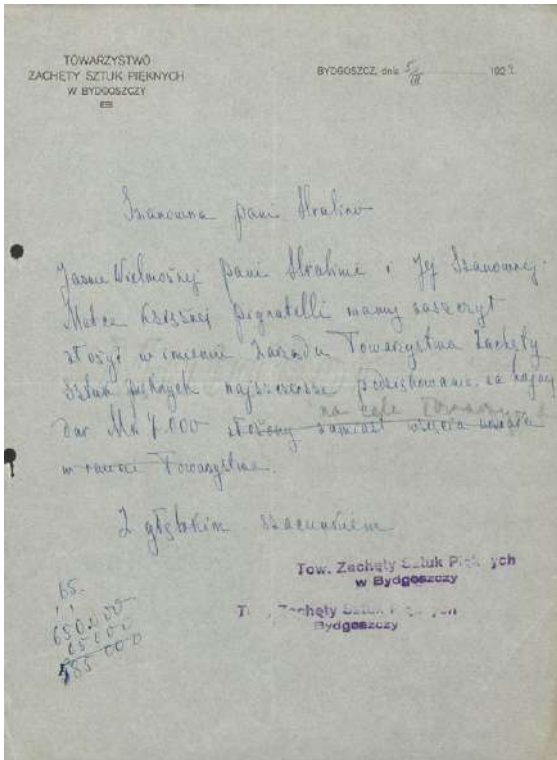 TOWARZYSTWO
ZACHĘTY SZTUK PIĘKNYCH
W BYDGOSZCZY
BYDGOSZCZ, dnia 5/III 192
Szanowna pani Hrabino
Jaśnie Wielmożnej Pani Hrabinie i Jej Szanownej
Matce Księżnej Pignatelli mamy zaszczyt
złożyć w imieniu Zarządu Towarzystwa Zachęty
Sztuk pięknych najszczersze podziękowanie za hojny
na cele
dar Mk 7.000 złożony zamiast wzięcia udziału
w raucie Towarzystwa.
Z głębokim szacunkiem
Tow. Zachęty Sztuk Pięk ych
w Bydgoszczy
T Zachęty Sztuk P
Bydgoszczy
65.
650.000
65 000
585 000